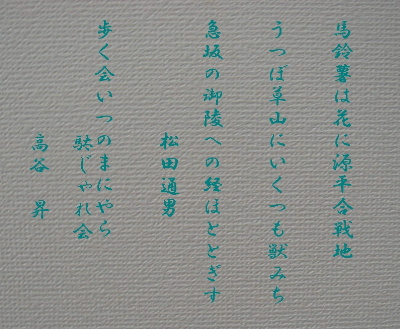 馬鈴薯は花に源平合戦地
うつぼ草山にいくつも獣みち
急坂の御陵への径ほととぎす
松田通男
歩く会いつのまにやら
駄じゃれ会
高谷 昇